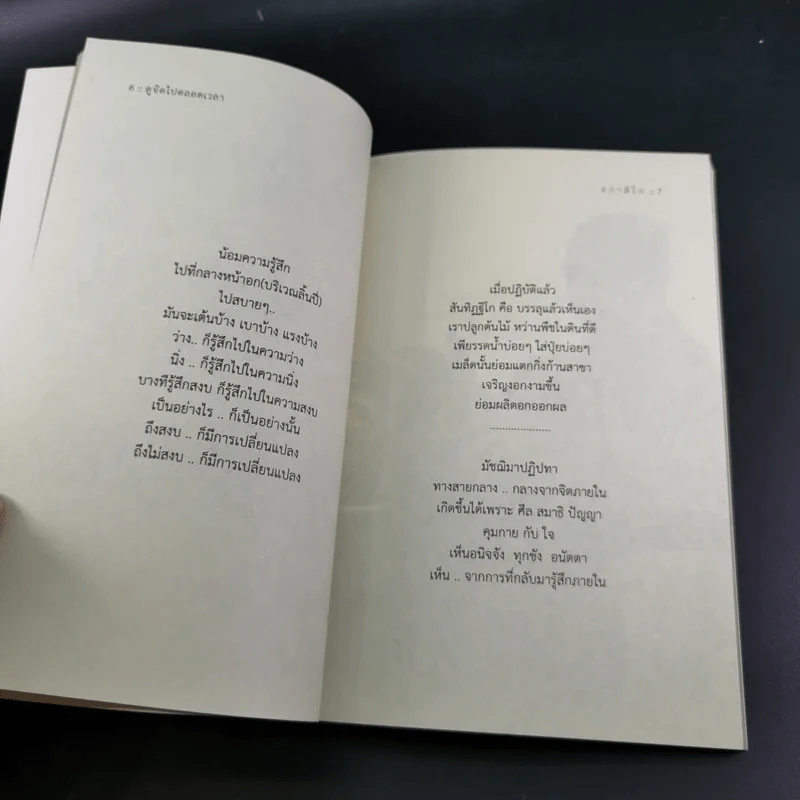 6 :: ดูจิตไปตลอดเวลา
น้อมความรู้สึก
ไปที่กลางหน้าอก(บริเวณลิ้นปี่)
ไปสบายๆ..
มันจะเต้นบ้าง เบาบ้าง แรงบ้าง
ว่าง.. ก็รู้สึกไปในความว่าง
นิ่ง .. ก็รู้สึกไปในความนิ่ง
บางทีรู้สึกสงบ ก็รู้สึกไปในความสงบ
เป็นอย่างไร .. ก็เป็นอย่างนั้น
ถึงสงบ .. ก็มีการเปลี่ยนแปลง
ถึงไม่สงบ .. ก็มีการเปลี่ยนแปลง
:: 7
เมื่อปฏิบัติแล้ว
สันทิฏฐิโก คือ บรรลุแล้วเห็นเอง
เราปลูกต้นไม้ หว่านพืชในดินที่ดี
เพียรรดน้ำบ่อยๆ ใส่ปุ๋ยบ่อยๆ
เมล็ดนั้นย่อมแตกกิ่งก้านสาขา
เจริญงอกงามขึ้น
ย่อมผลิดอกออกผล
...................
มัชฌิมาปฏิปทา
ทางสายกลาง .. กลางจากจิตภายใน
เกิดขึ้นได้เพราะ ศีล สมาธิ ปัญญา
คุมกาย กับ ใจ
เห็นอนิจจัง ทุกขัง อนัตตา
เห็น .. จากการที่กลับมารู้สึกภายใน